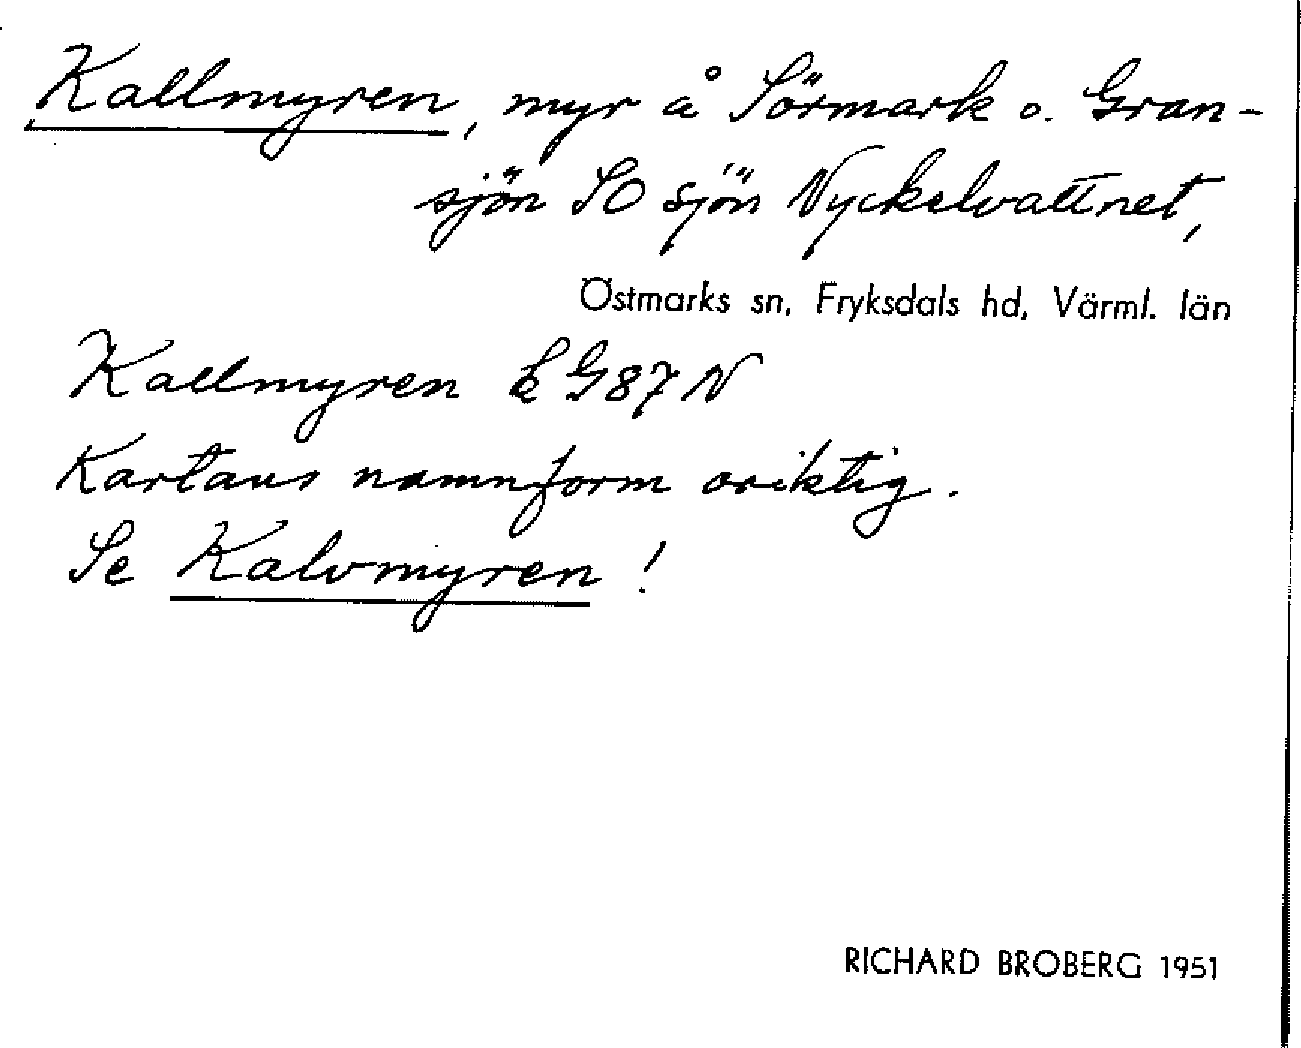 Kallmyren, myr å Sörmark o. Gran-
sjön SO sjön Nyckelvattnet,
Östmarks sn, Fryksdals hd, Värml. län
Kallmyren k G87 N
Kartans namnform oriktig.
Se Kalvmyren!
RICHARD BROBERG 1951